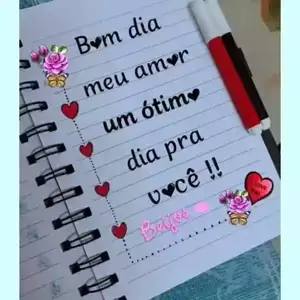 Bom dia
meu amor
um ótimo
dia pra
você !!
Beijos